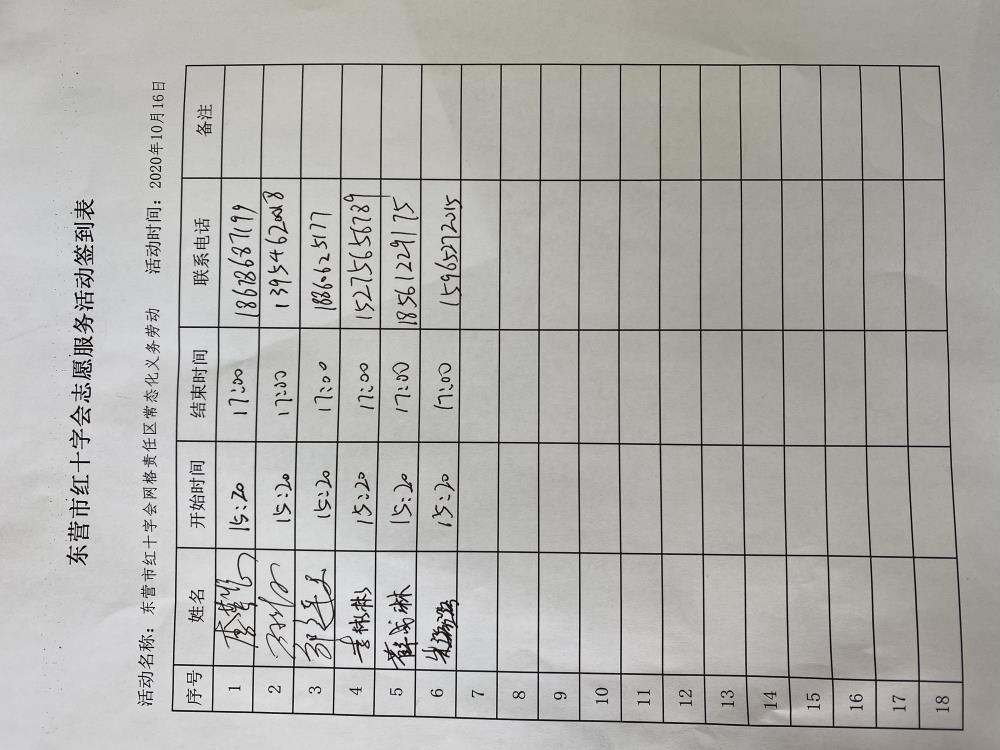 东营市红十字会志愿服务活动签到表
活动名称：东营市红十字会网格责任区常态化义务劳动 活动时间：2020年10月16日
序号 姓名 开始时间 结束时间 联系电话 备注
1 15:20 17:00 18678687199
2 15:20 17:00 13954620028
3 15:20 17:00 18860625177
4 李彬彬 15:20 17:00 15275656789
5 薛成琳 15:20 17:00 18561229175
6 15:20 17:00 15965272015
7
8
9
10
11
12
13
14
15
16
17
18